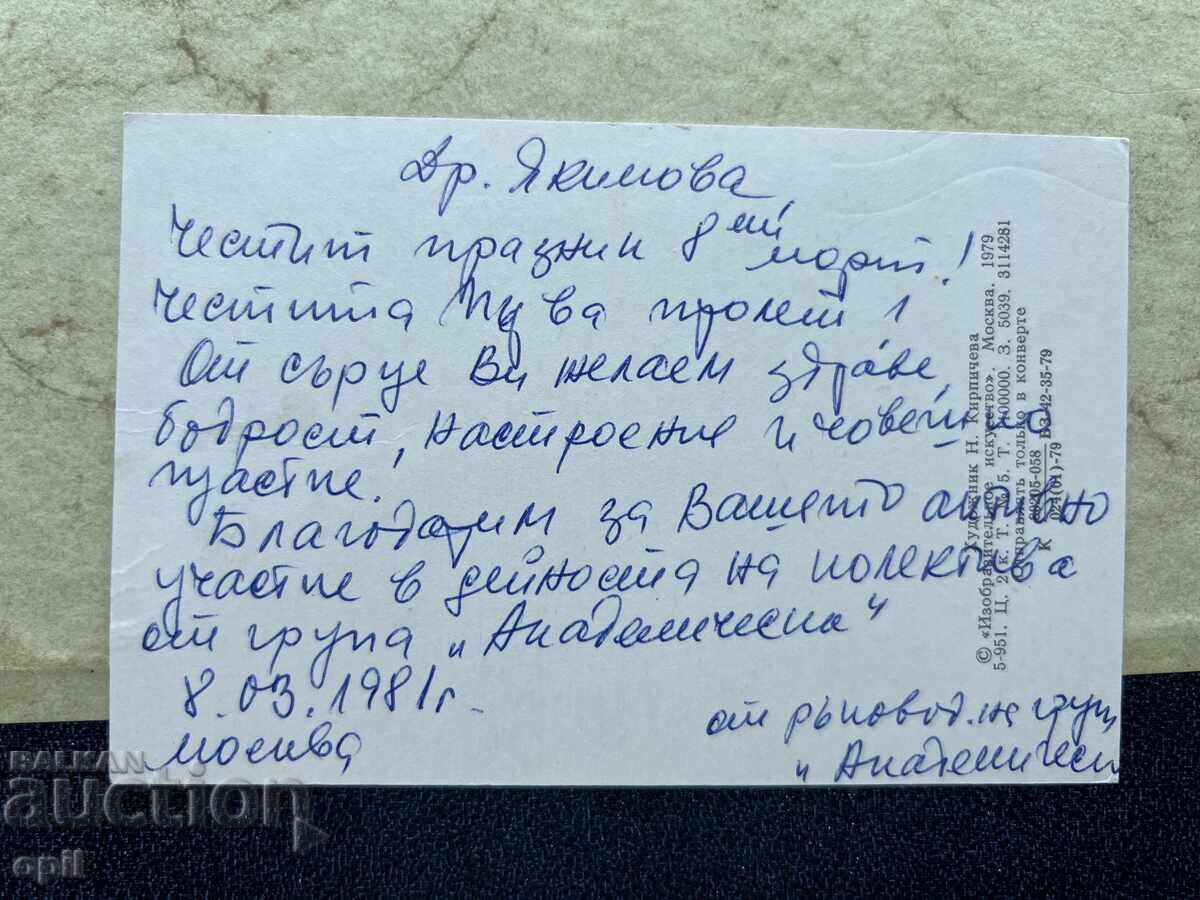 Др. Якимова
Честит празник 8ми март!
Честита Пъва пролет!
От сърце Ви желаем здраве,
бодрост, настроение и човешко
щастие!
Благодарим за Вашето активно
участие в дейността на колектива
от група „Академическа"
8.03.1981г.
Москва
от ръковод. на груп
„Академическ
Художник Н. Кирпичева
© «Изобразительное искусство». Москва. 1979
5-951. Ц. 2 к. Т. № 5. Т. 400000. З. 5039. 3114281
Отправлять только в конверте
К 80205-058 БЗ-42-35-79
024(01)-79
BALKAN
auction
opil